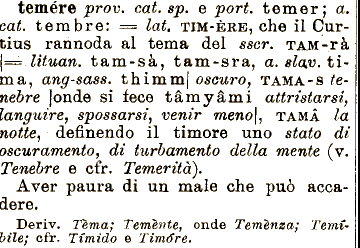 temére prov. cat. sp. e port. temer; a.
cat. tembre: = lat. TIM-ÈRE, che il Cur-
tius rannoda al tema del sscr. TAM-rà
|= lituan. tam-sà, tam-sra, a. slav. ti-
ma, ang-sass. thimm| oscuro, TAMA-S te-
nebre |onde si fece tâmyâmi attristarsi,
languire, spossarsi, venir meno|, TAMÂ la
notte, definendo il timore uno stato di
oscuramento, di turbamento della mente (v.
Tenebre e cfr. Temerità).
Aver paura di un male che può acca-
dere.
Deriv. Tèma; Temènte, onde Temènza; Temí-
bile; cfr. Tímido e Timóre.